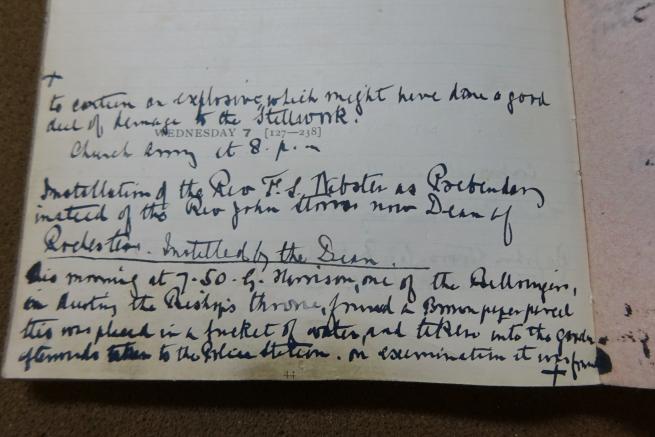 +
to contain an explosive, which might have done a good
deal of damage to the Stillwork.
WEDNESDAY 7 [127—238]
Church Army at 8. p. m
Installation of the Rev F. S. Webster as Prebendary
instead of the Rev John Storrs now Dean of
Rochester. Installed by the Dean.
This morning at 7-50. G. Harrison, one of the Bellringers,
on dusting the Bishop's throne, found a Brown paper parcel
this was placed in a bucket of water, and taken into the garden
afterwards taken to the Police Station. on examination it was found
+
44